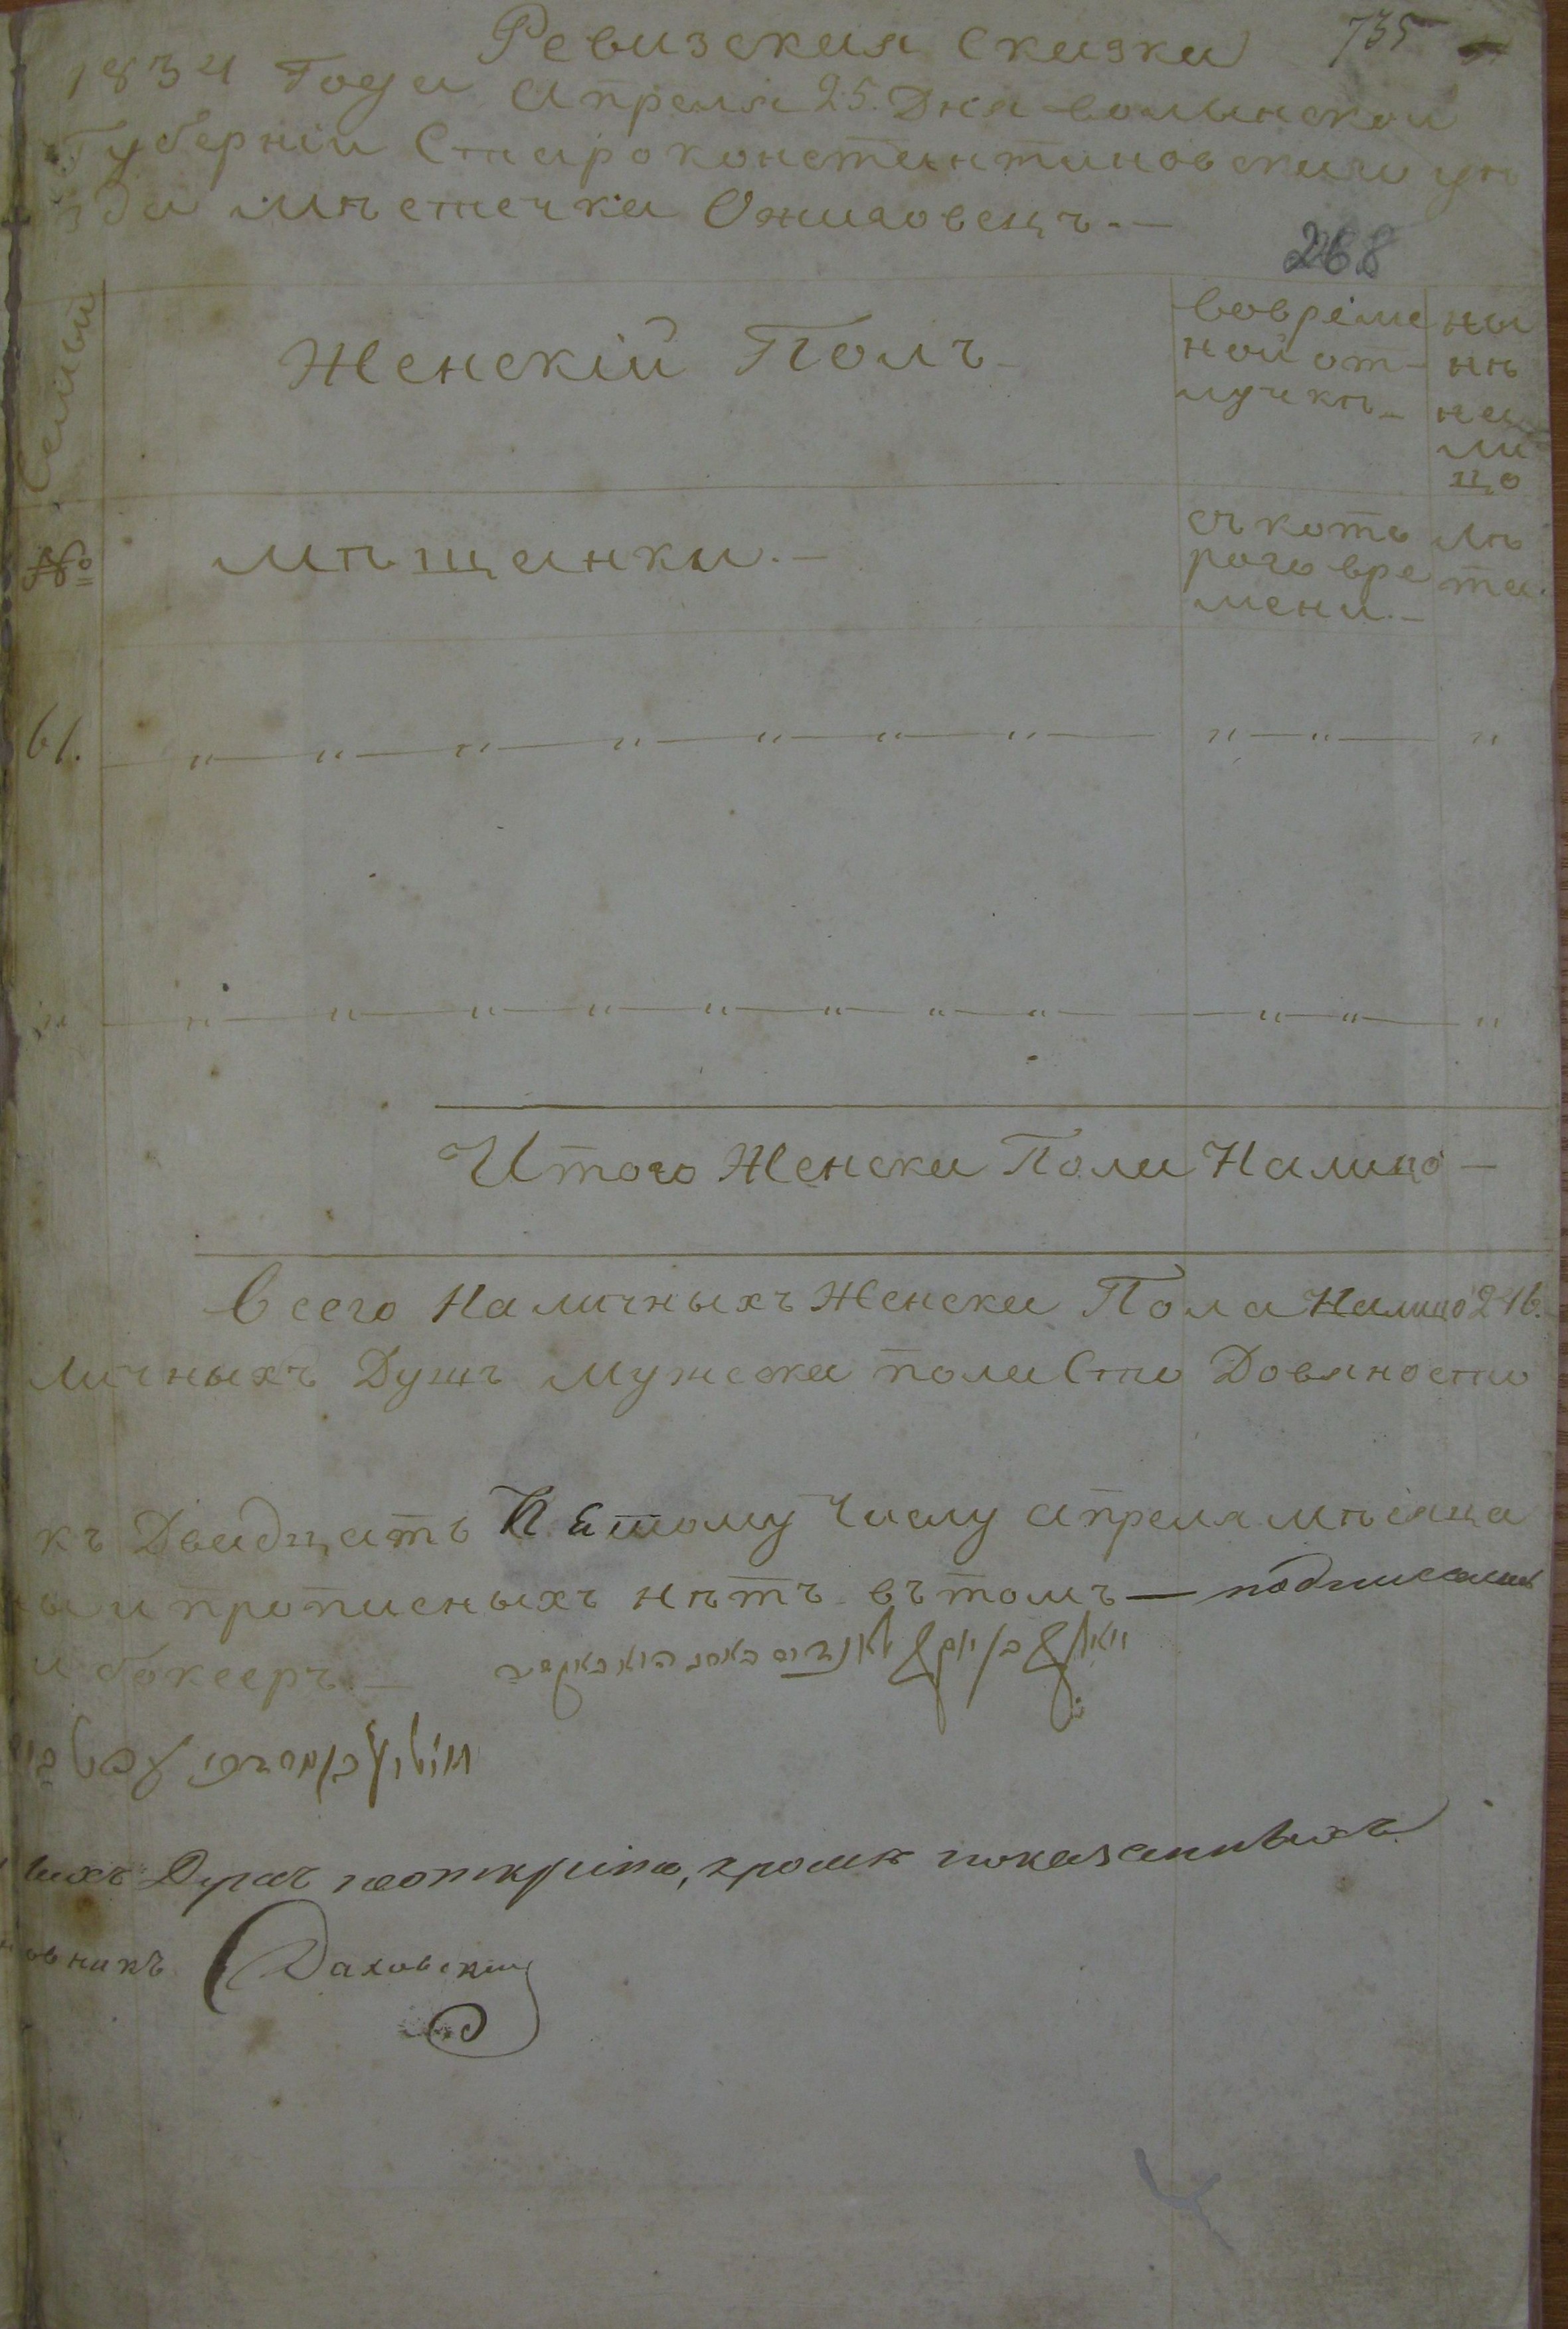 Ревизская Сказка 735
1834 Года Апреля 25. Дня волынской
Губерніи Староконстантиновскаго уѣ
зда мѣстечка Ожиговецъ.—
268
№ Семьи
Женскій Полъ
вовреме
ной от-
лучкѣ
ны
нѣ
на
ли
цо
мѣщанки.—
съ кото
раго вре
мени.—
лѣ
та.
61. — „ — „ — „ — „ — „ — „ — „ — „ — „ — „
„ — „ — „ — „ — „ — „ — „ — „ — „ — „ — „ — „
Итого Женска Пола Налицо —
Всего Наличныхъ Женска Пола Налицо 216.
личныхъ Душъ мужска пола Сто Девяносто
къ Двадцать Пятому Числу апреля мѣсяца
и прописныхъ нѣтъ въ томъ — подписались
и бокееръ.—
Душъ неоткрыто, кромѣ показанныхъ
овникъ Даховскій